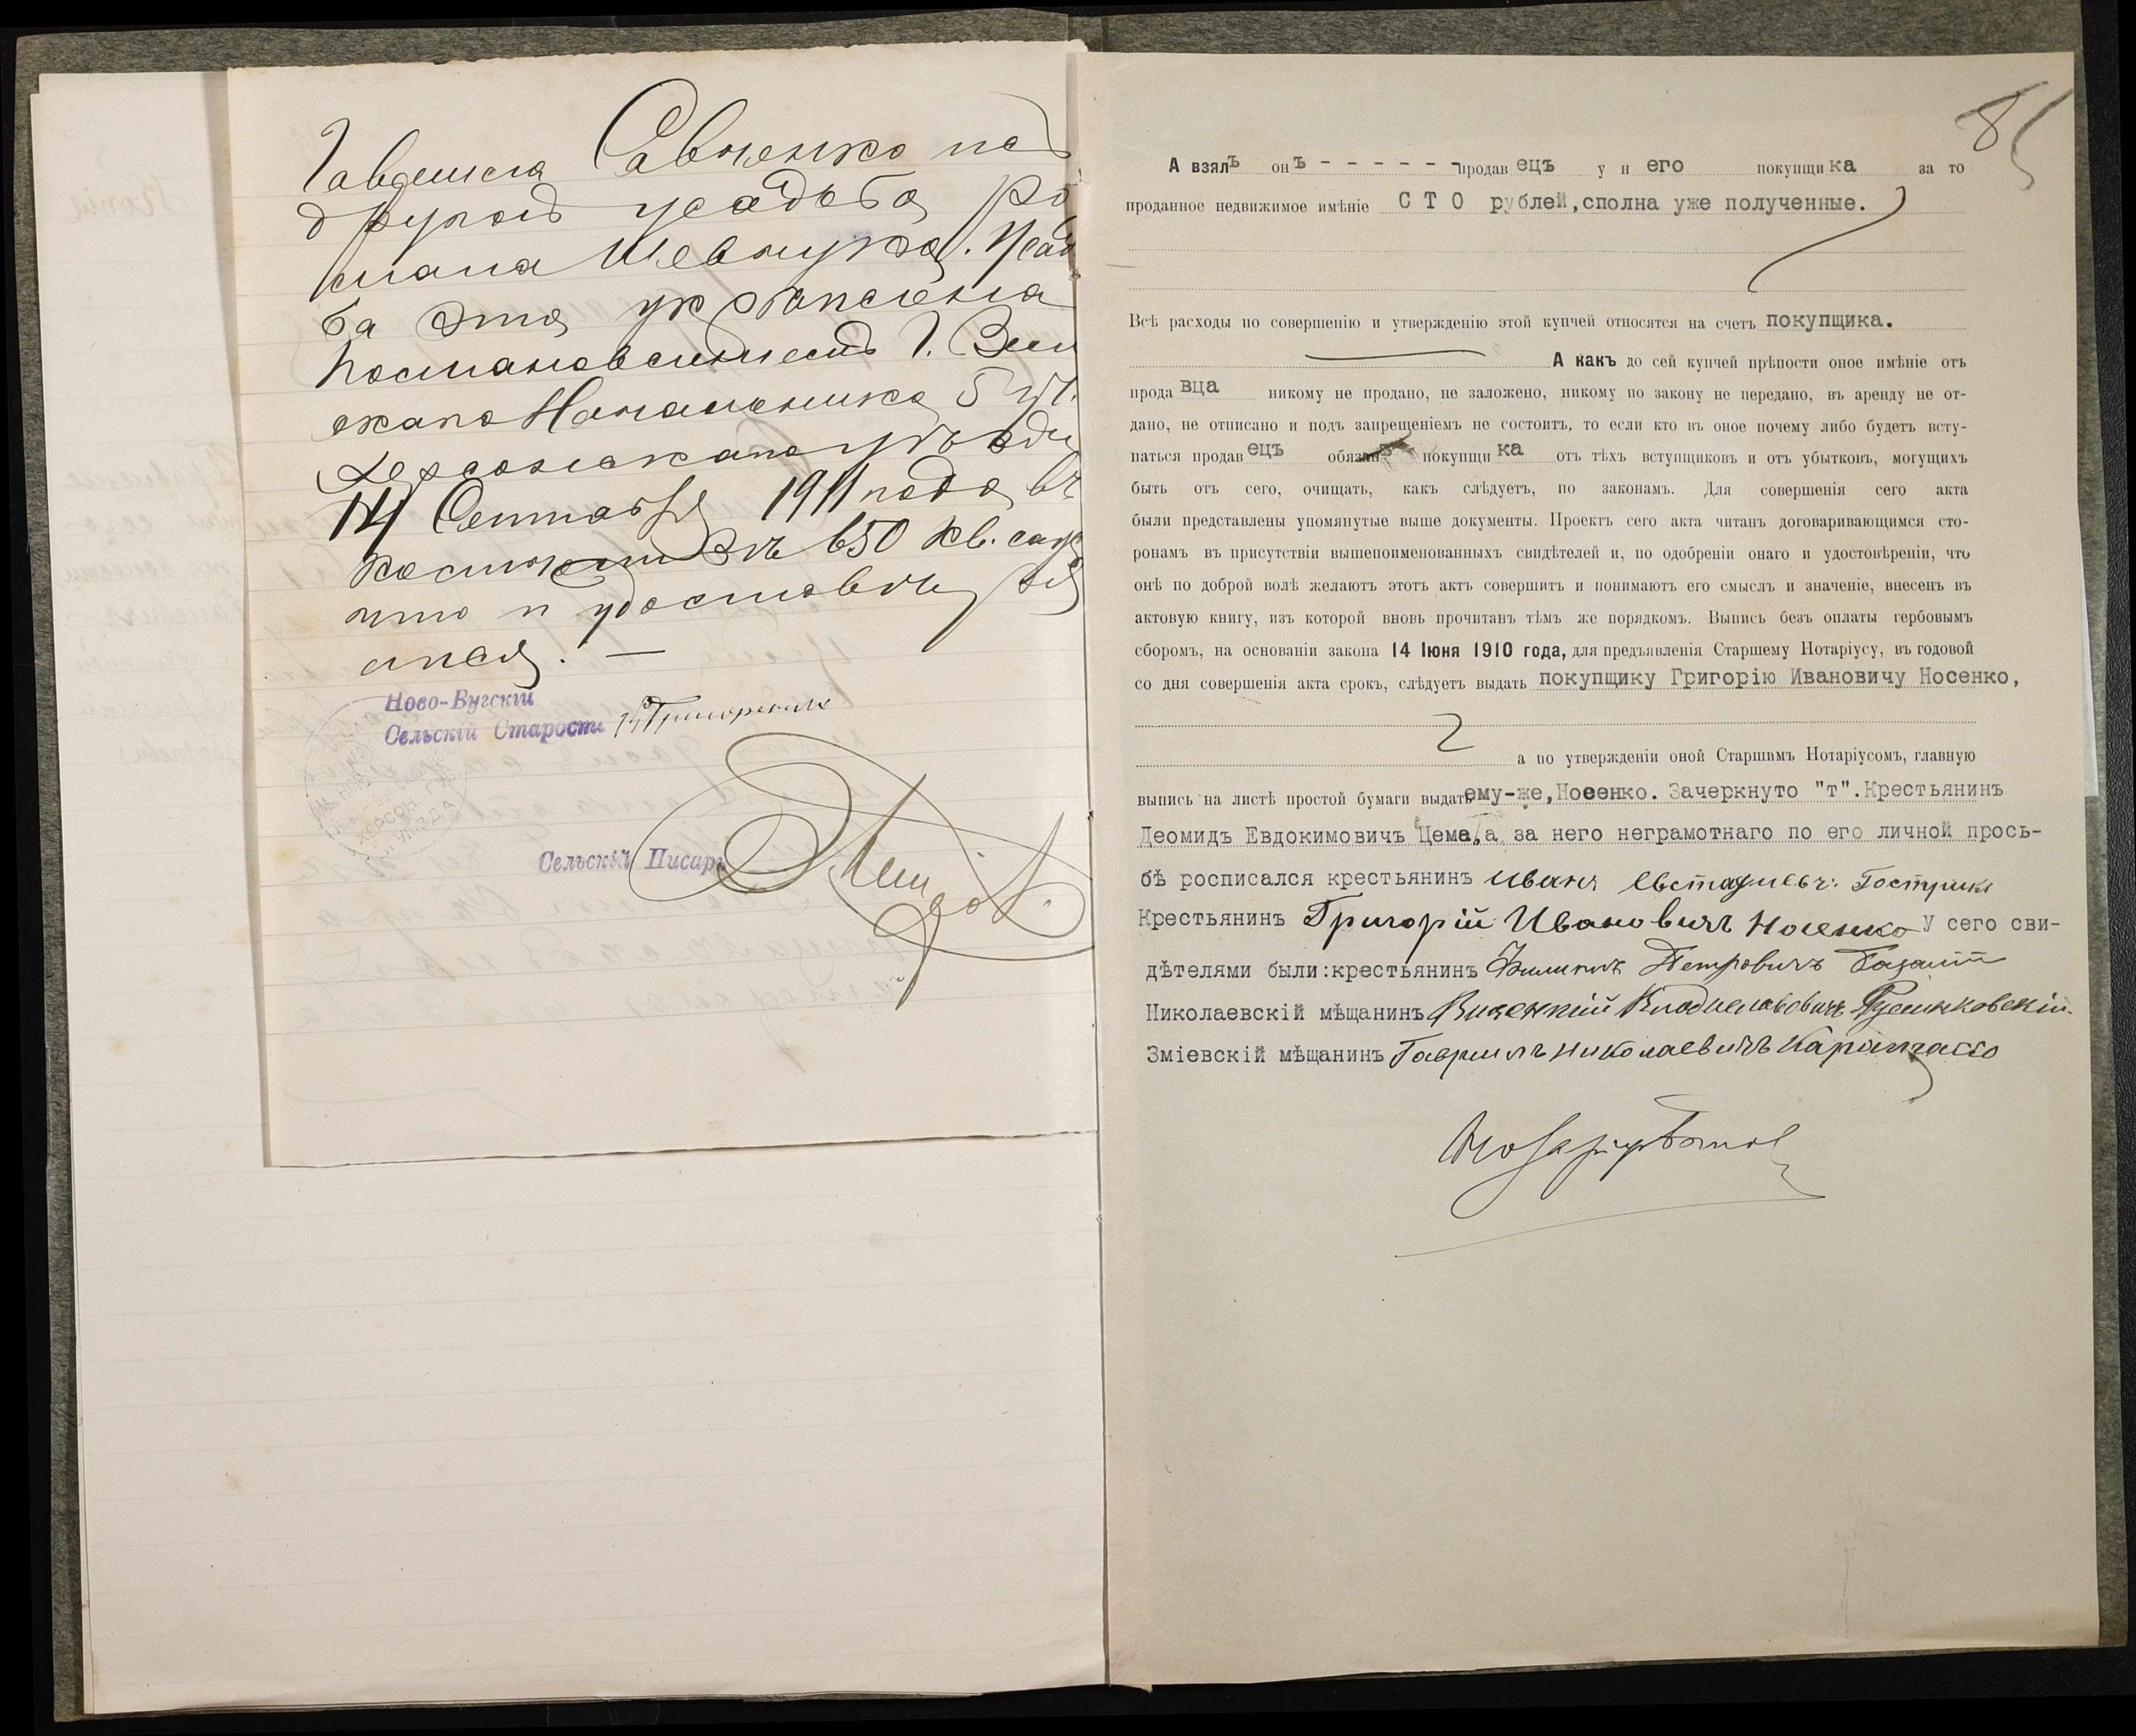 Савченко
другой усадьба Ро
мана Шевчука. Усадь
ба эта укреплена
постановлением Г. Зем
скаго Начальника 5 уч.
Херсонскаго уезда
14 Сентября 1911 года, въ
650 кв. саж
что и удостоверя
ется. —
Ново-Бугскій
Сельскій Староста
Сельскій Писарь
85
А взялъ онъ - - - - - - продавецъ у него покупщика за то
проданное недвижимое имѣніе СТО рублей, сполна уже полученные.
Всѣ расходы по совершенію и утвержденію этой купчей относятся на счетъ покупщика.
А какъ до сей купчей крѣпости оное имѣніе отъ
продавца никому не продано, не заложено, никому по закону не передано, въ аренду не от-
дано, не отписано и подъ запрещеніемъ не состоитъ, то если кто въ оное почему либо будетъ всту-
паться продавецъ обязанъ покупщика отъ тѣхъ вступщиковъ и отъ убытковъ, могущихъ
быть отъ сего, очищать, какъ слѣдуетъ, по законамъ. Для совершенія сего акта
были представлены упомянутые выше документы. Проектъ сего акта читанъ договаривающимся сто-
ронамъ въ присутствіи вышепоименованныхъ свидѣтелей и, по одобреніи онаго и удостовѣреніи, что
онѣ по доброй волѣ желаютъ этотъ актъ совершить и понимаютъ его смыслъ и значеніе, внесенъ въ
актовую книгу, изъ которой вновь прочитанъ тѣмъ же порядкомъ. Выпись безъ оплаты гербовымъ
сборомъ, на основаніи закона 14 Іюня 1910 года, для предъявленія Старшему Нотаріусу, въ годовой
со дня совершенія акта срокъ, слѣдуетъ выдать покупщику Григорію Ивановичу Носенко,
а по утвержденіи оной Старшимъ Нотаріусомъ, главную
выпись на листѣ простой бумаги выдать ему-же, Носенко. Зачеркнуто "т". Крестьянинъ
Деомидъ Евдокимовичъ Цема, а за него неграмотнаго по его личной прось-
бѣ росписался крестьянинъ Иванъ Евстафіевъ
Крестьянинъ Григорій Ивановичъ Носенко У сего сви-
дѣтелями были: крестьянинъ Филиппъ Петровичъ
Николаевскій мѣщанинъ Викентій Владиславовичъ
Зміевскій мѣщанинъ Гавриилъ Николаевичъ